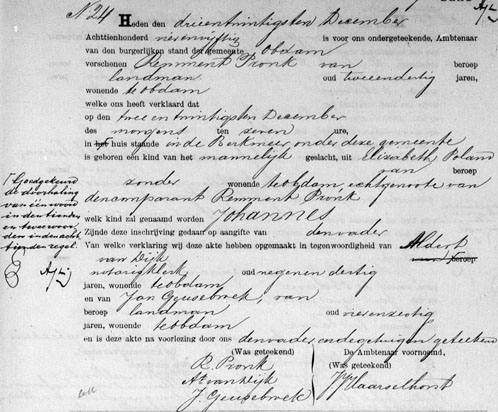 N. 24
Heden den drieentwintigsten December
Achttienhonderd is voor ons ondergeteekende, Ambtenaar
van den burgerlijken stand der gemeente Obdam
verschenen Remment Pronk van beroep
landman oud tweeendertig jaren,
wonende te Obdam
welke ons heeft verklaard dat
op den twee en twintigsten December
des morgens ten zeven ure,
in het huis staande in de Berkmeer onder deze gemeente
is geboren een kind van het mannelijk geslacht, uit Elizabeth Poland
van beroep
zonder wonende te Obdam, echtgenoote van
den comparant Remmont Pronk
welk kind zal genaamd worden Johannes
Zijnde deze inschrijving gedaan op aangifte van den vader
Van welke verklaring wij deze akte hebben opgemaakt in tegenwoordigheid van Aldert
van Dijk van beroep
notarisklerk oud negen en dertig
jaren, wonende te Obdam
en van Jan Geusebroek, van
beroep landman oud
jaren, wonende te Obdam
en is deze akte na voorlezing door ons den vader en de getuigen geteekend
(Was geteekend) De Ambtenaar voornoemd,
R. Pronk (Was geteekend)
At. van Dijk
J. Geusebroek
Goedgekeurd
de doorhaling
van een woord
in den tienden
en twee woor-
den in den acht-
tienden regel.